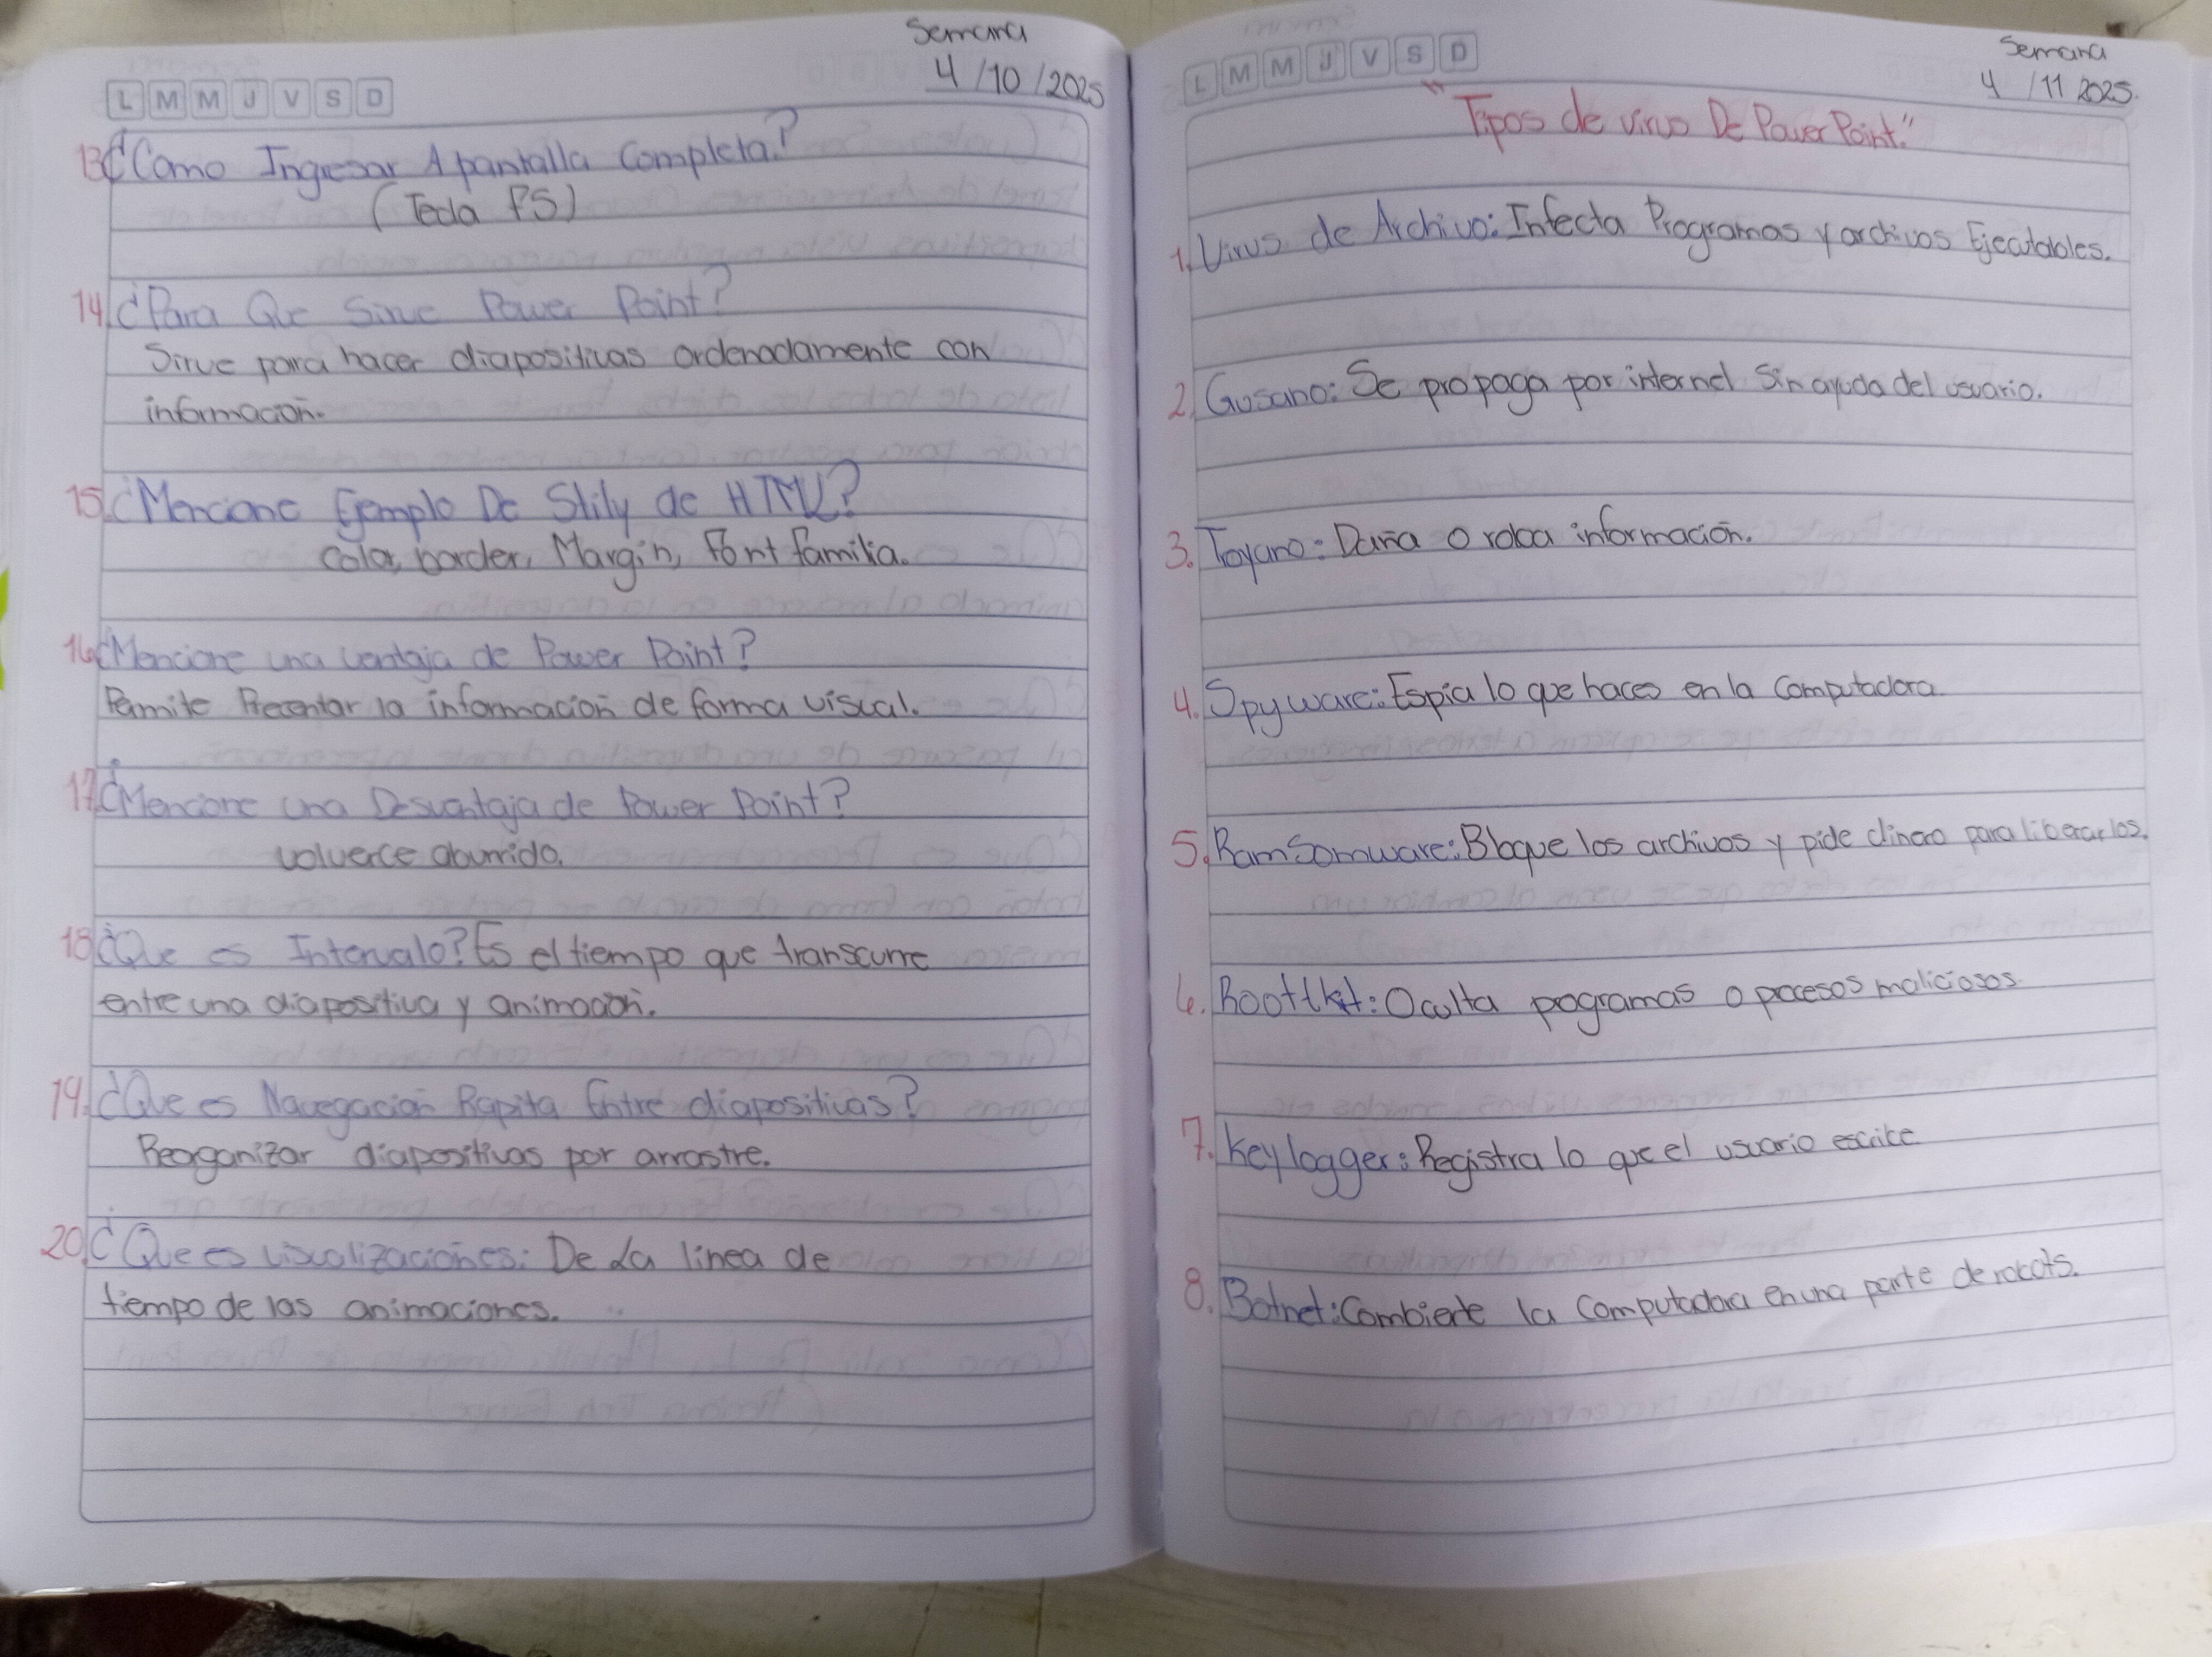 Semana
4/10/2025
L M M J V S D
13 ¿Como Ingresar A pantalla Completa?
(Tecla F5)
14. ¿Para Que Sirve Power Point?
Sirve para hacer diapositivas ordenadamente con
informacion.
15. ¿Mencione Ejemplo De Stily de HTML?
Color, border, Margin, Font familia.
16. ¿Mencione una ventaja de Power Point?
Permite Presentar la información de forma visual.
17. ¿Mencione una Desventaja de Power Point?
volverce aburrido.
18 ¿Que es Intervalo? Es el tiempo que transcurre
entre una diapositiva y animación.
19. ¿Que es Navegacion Rapita Entre diapositivas?
Reorganizar diapositivas por arrastre.
20. ¿Que es visualizaciones: De La linea de
tiempo de las animaciones.
Semana
4/11 2025.
L M M J V S D
"Tipos de virus De Power Point."
1. Virus de Archivo: Infecta Programas y archivos Ejecutables.
2. Gusano: Se propaga por internet Sin ayuda del usuario.
3. Troyano: Daña o roba información.
4. Spyware: Espia lo que haces en la Computadora
5. Ramsomware: Bloque los archivos y pide dinero para liberarlos.
6. Roottkit: Oculta pogramas o procesos maliciosos.
7. Keylogger: Registra lo que el usuario escribe
8. Botnet: Combierte la Computadora en una parte de robots.